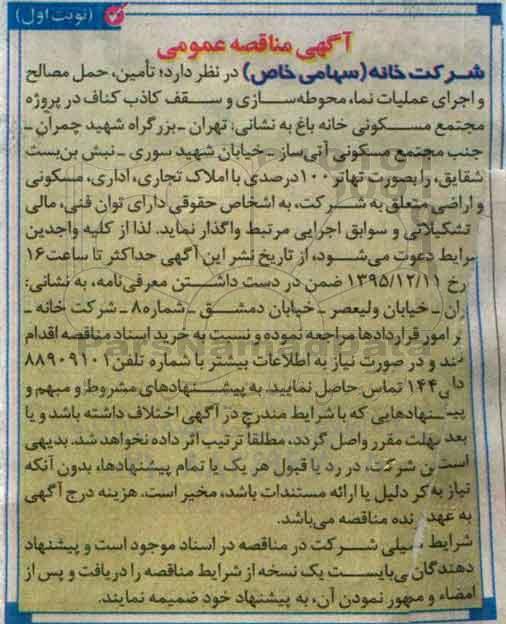 (نوبت اول)
آگهی مناقصه عمومی
شرکت خانه (سهامی خاص) در نظر دارد؛ تأمین، حمل مصالح
و اجرای عملیات نما، محوطه‌سازی و سقف کاذب کناف در پروژه
مجتمع مسکونی خانه باغ به نشانی: تهران ـ بزرگراه شهید چمران ـ
جنب مجتمع مسکونی آتی‌ساز ـ خیابان شهید سوری ـ نبش بن‌بست
شقایق، را بصورت تهاتر ۱۰۰درصدی با املاک تجاری، اداری، مسکونی
و اراضی متعلق به شرکت، به اشخاص حقوقی دارای توان فنی، مالی
تشکیلاتی و سوابق اجرایی مرتبط واگذار نماید. لذا از کلیه واجدین
رایط دعوت می‌شود، از تاریخ نشر این آگهی حداکثر تا ساعت۱۶
رخ ۱۳۹۵/۱۲/۱۱ ضمن در دست داشتن معرفی‌نامه، به نشانی:
ران ـ خیابان ولیعصر ـ خیابان دمشق ـ شماره۸ ـ شرکت خانه ـ
ر امور قراردادها مراجعه نموده و نسبت به خرید اسناد مناقصه اقدام
ند و در صورت نیاز به اطلاعات بیشتر با شماره تلفن۸۸۹۰۹۱۰۱
دا ی ۱۴۴ تماس حاصل نمایید. به پیشنهادهای مشروط و مبهم و
پیشنهادهایی که با شرایط مندرج در آگهی اختلاف داشته باشد و یا
بعد مهلت مقرر واصل گردد، مطلقاً ترتیب اثر داده نخواهد شد. بدیهی
است ن شرکت، در رد یا قبول هر یک یا تمام پیشنهادها، بدون آنکه
نیاز به کر دلیل یا ارائه مستندات باشد، مخیر است. هزینه درج آگهی
به عهد نده مناقصه می‌باشد.
شرایط یلی شرکت در مناقصه در اسناد موجود است و پیشنهاد
دهندگان می‌بایست یک نسخه از شرایط مناقصه را دریافت و پس از
امضاء و ممهور نمودن آن، به پیشنهاد خود ضمیمه نمایند.